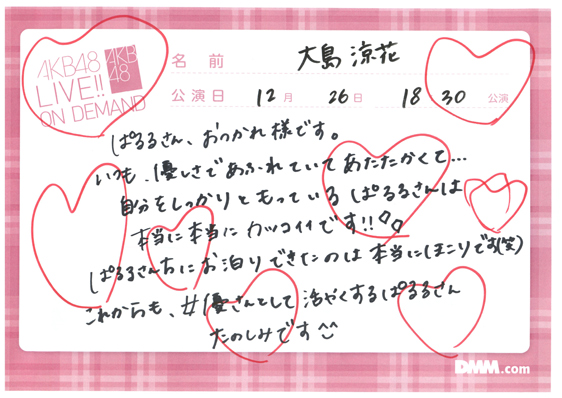 AKB48
LIVE!!
ON DEMAND
AKB
48
名前 大島 涼花
公演日 12月 26日 18 30 公演
ぱるるさん、おつかれ様です。
いつも、優しさであふれていてあたたかくて...
自分をしっかりともっているぱるるさんは
本当に本当にカッコイイです!!
ぱるるさんちにお泊りできたのは本当にほこりです(笑)
これからも、#優さんとして活やくするぱるるさん
たのしみです
DMM.com